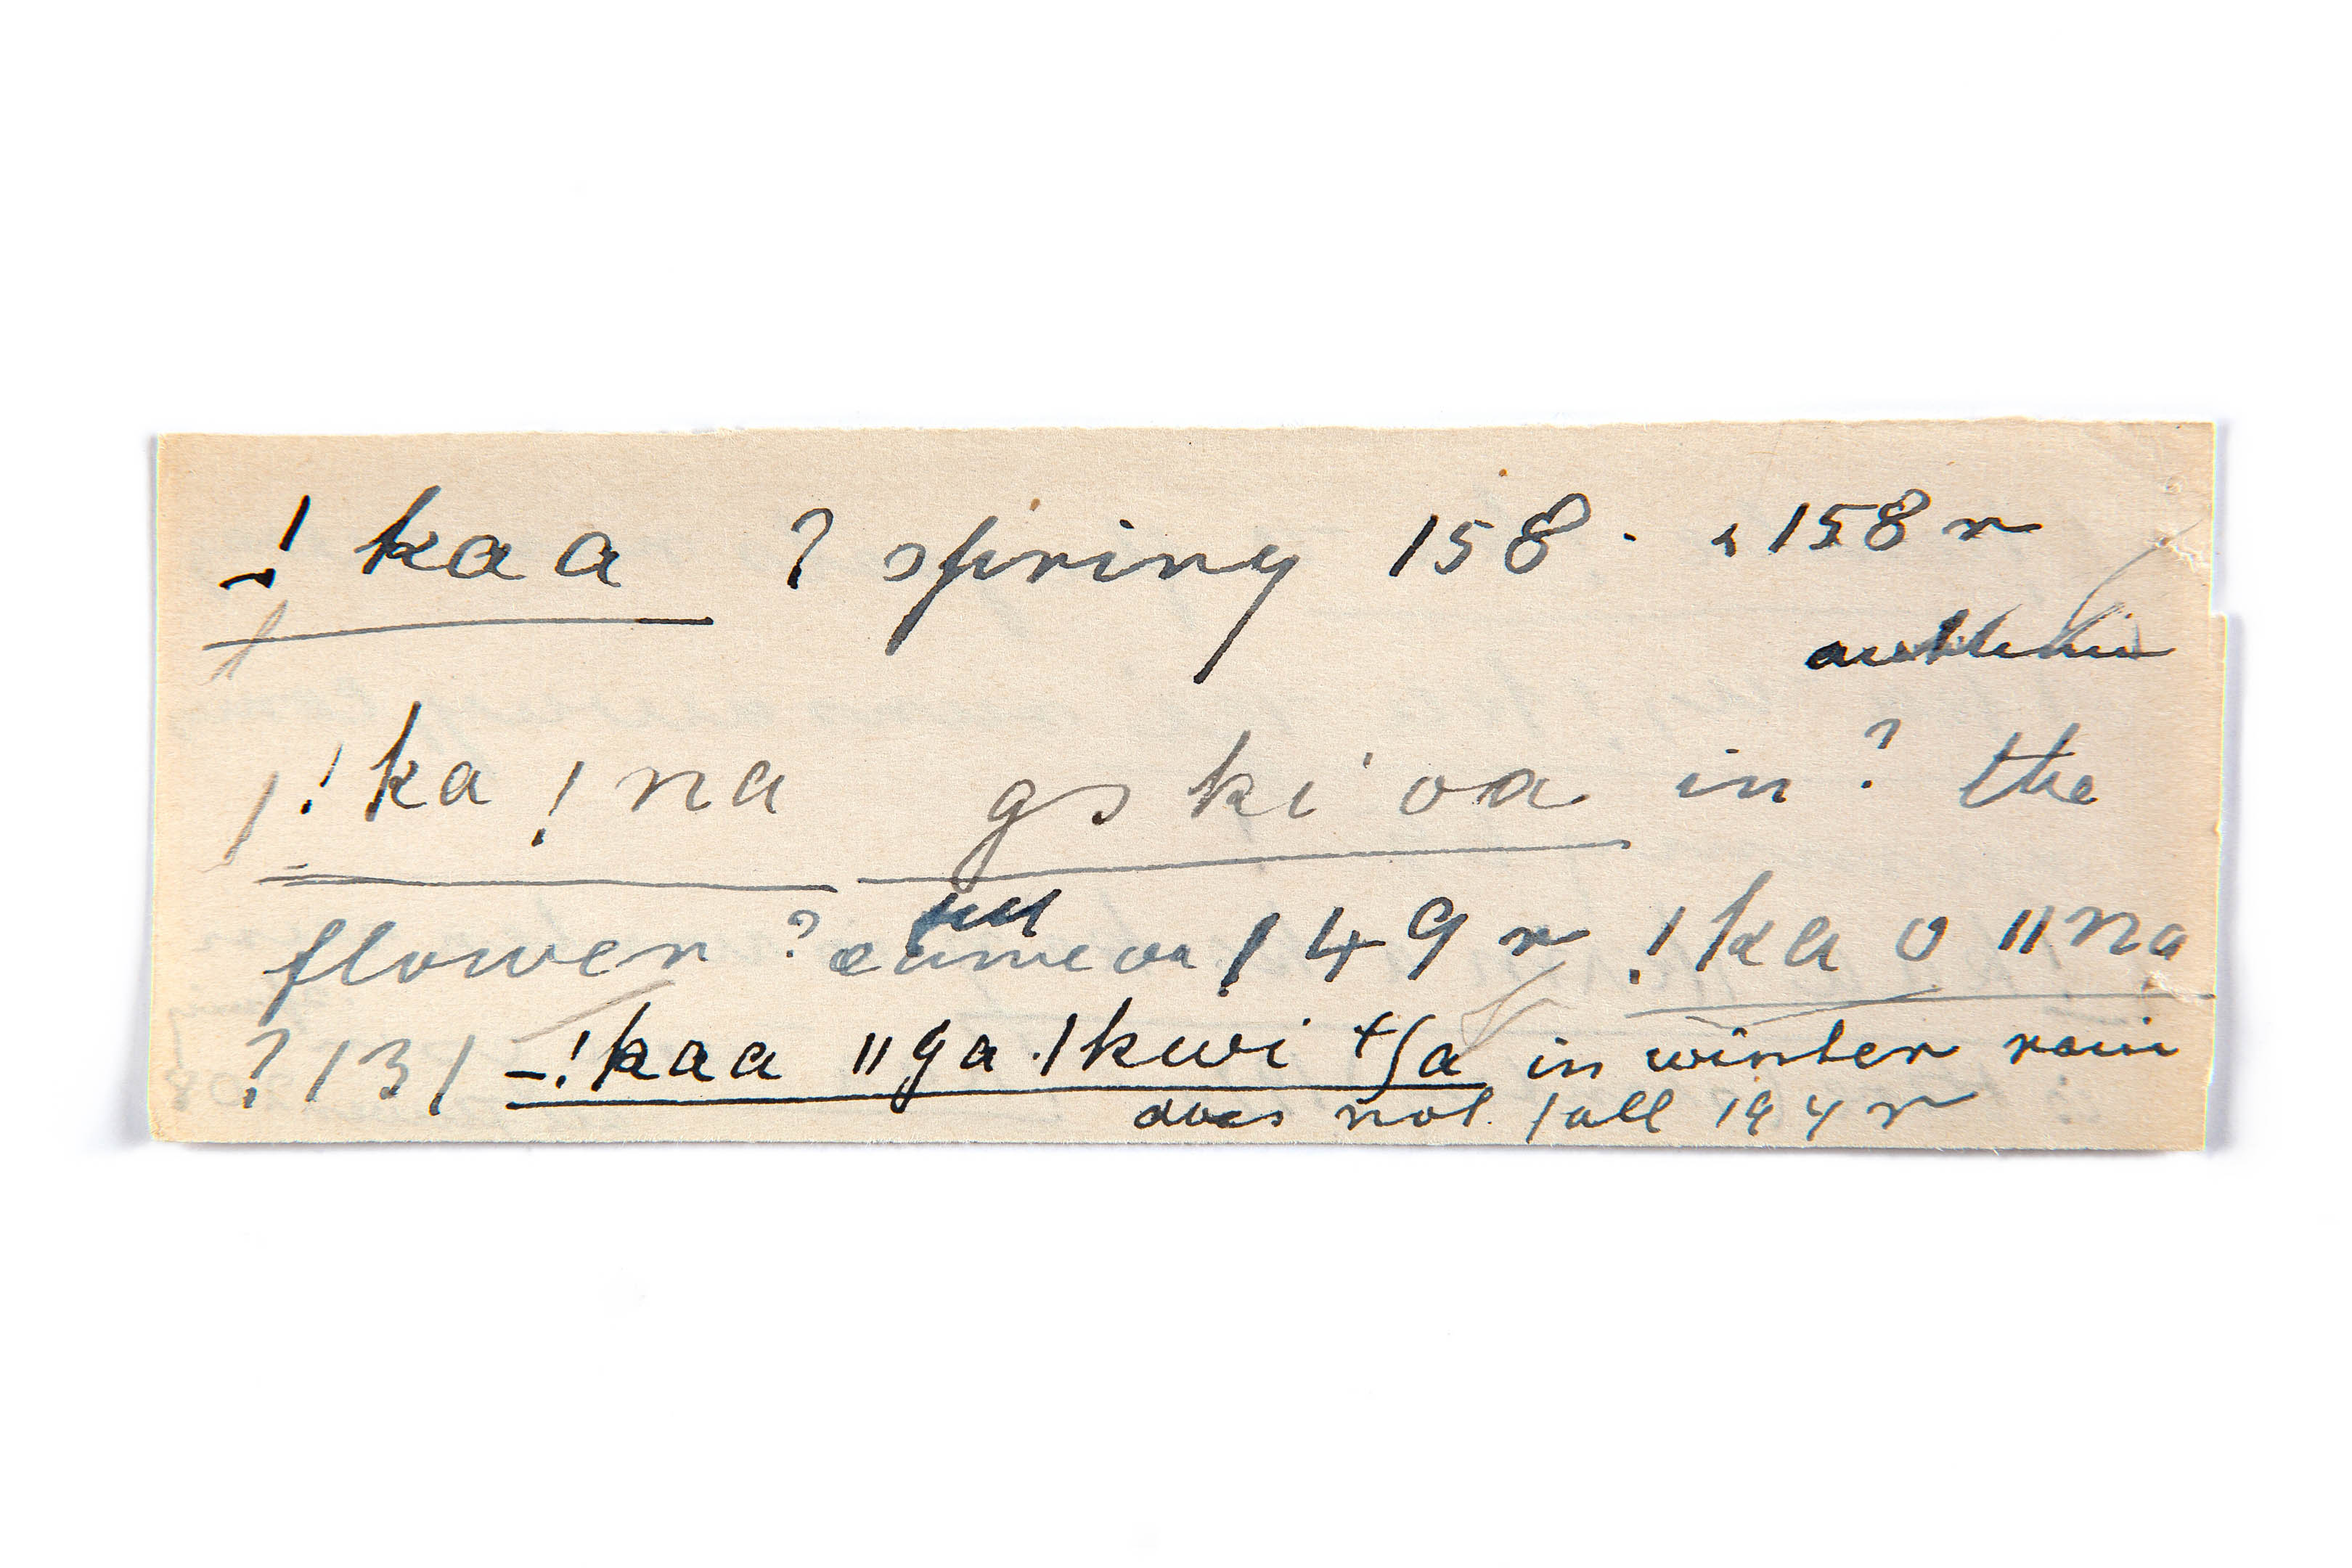 ! kaa ? spring 158 . 158 r
! ka ! na gs ki' oa in ? the
flower ? 149 r ! ka o ǁ na
? 131 – ! kaa ǁ ga . ǀ kwi in winter rain
does not fall 194 r